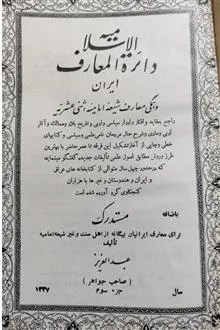 الاسلامیه
دائرة المعارف
ایران
و همگی معارف شیعه امامیه اثنی عشریه
راجع بعقاید و افکار و ادوار سیاسی و ادبی و تاریخ بلاد و ممالک و آثار
ادبی و ملوی و شرح حال مردمان نامی علمی و سیاسی و کتابهای
خطی و چاپی از آغاز تشکیل این فرقه تا عصر حاضر با بهترین
طرز و روش مطابق اصول علمی تألیفات جدید گفتگو مینماید
که در حدود چهل سال متوالی از کتابخانه های عراق
و ایران و هندوستان و غیر ها با هزاران
کنجکاوی گرد آورده شده است
باضافه
مستدرک
برای معارف ایرانیان بیگانه از اهل سنت و غیر شیعه امامیه
تألیف
عبدالعزیز
(صاحب جواهر)
سال
جزء سوم
۱۳۳۷